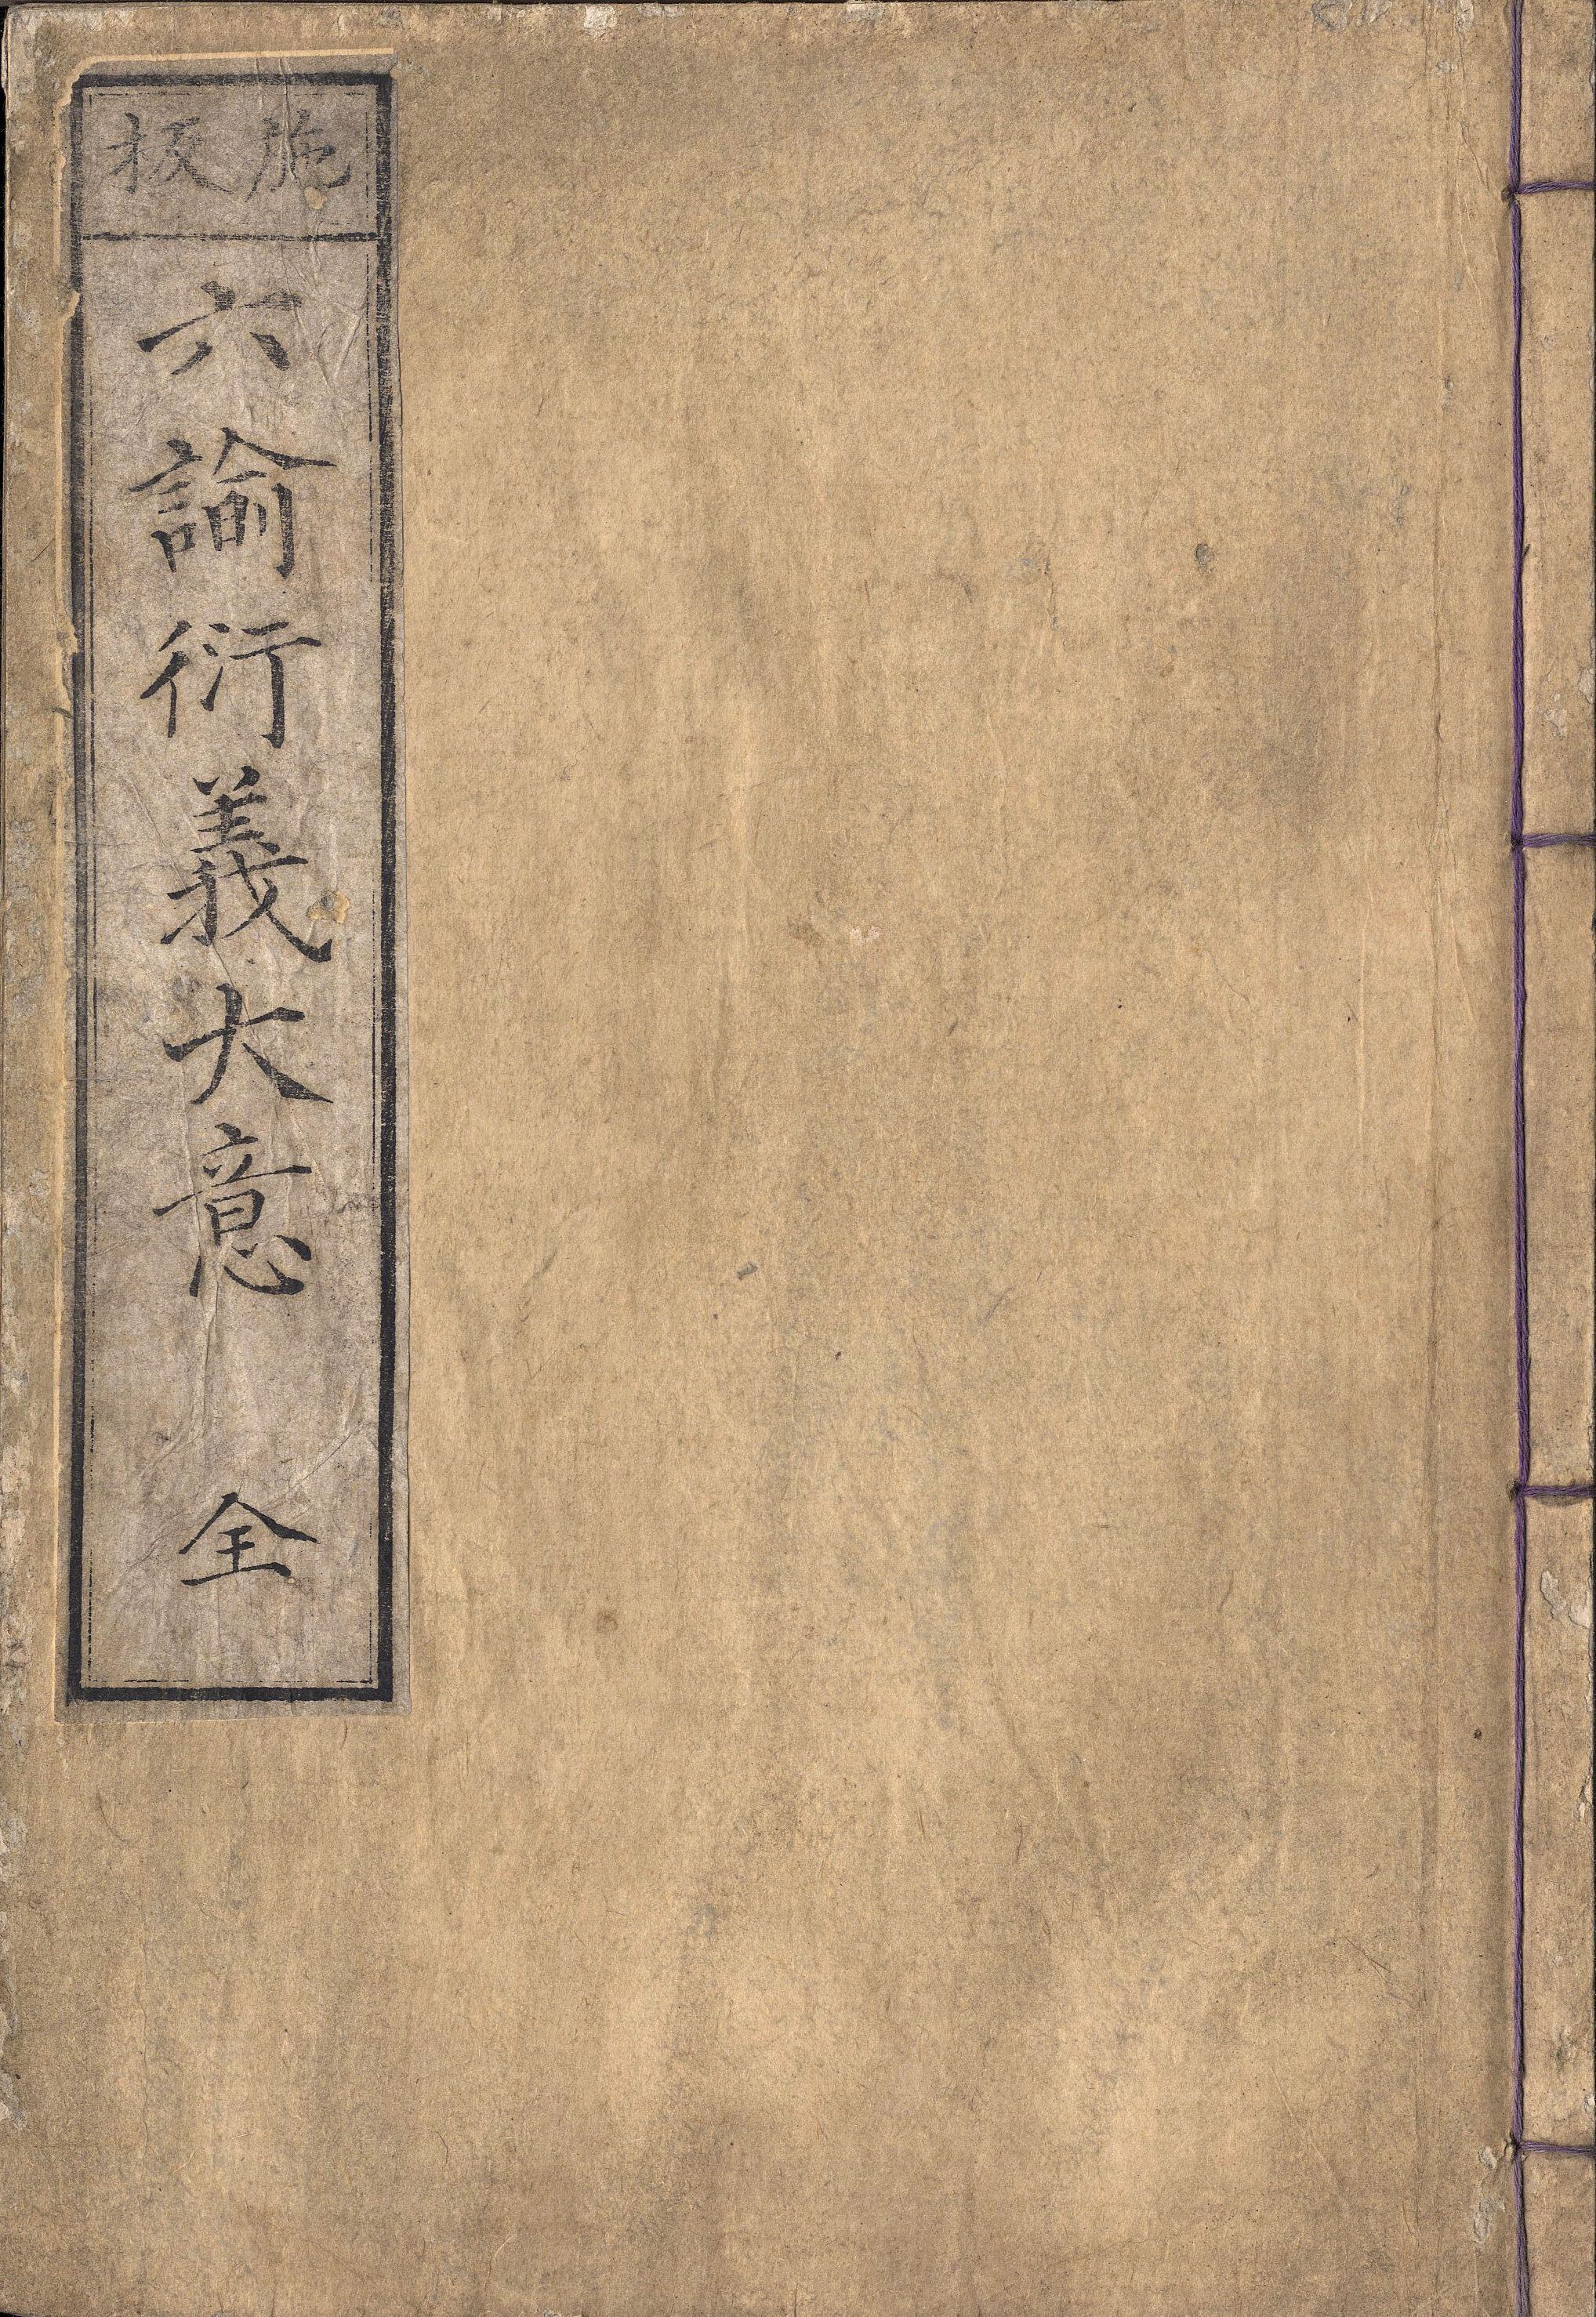 施板
六諭衍義大意　全